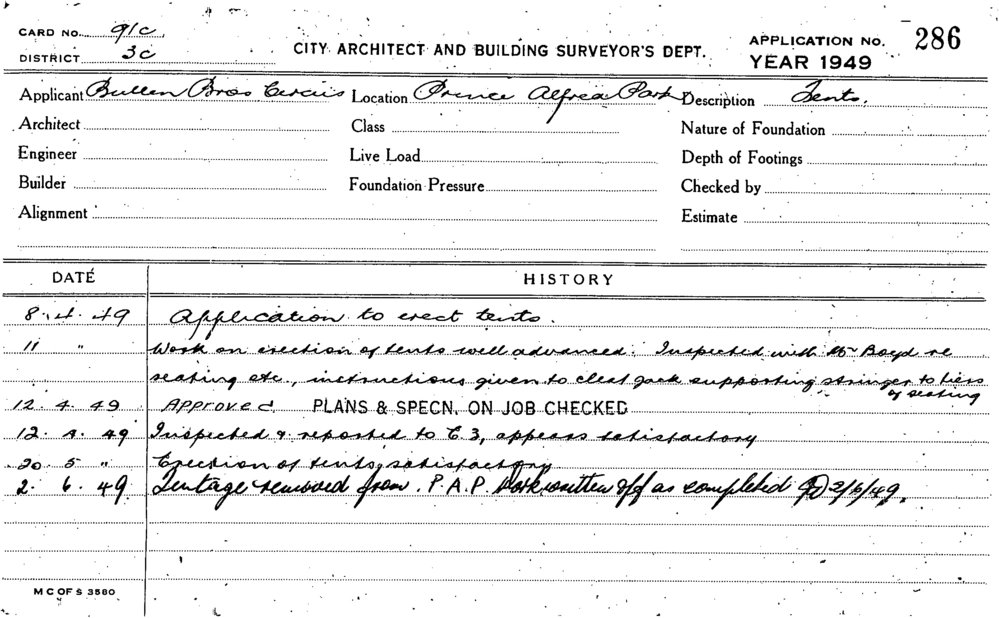 CARD NO. 91c
DISTRICT 3c
CITY ARCHITECT AND BUILDING SURVEYOR'S DEPT.
APPLICATION NO. 286
YEAR 1949
Applicant Bullen Bros Circus Location Prince Alfred Park Description Tents.
Architect Class Nature of Foundation
Engineer Live Load Depth of Footings
Builder Foundation Pressure Checked by
Alignment Estimate
DATE HISTORY
8.4.49 Application to erect tents.
11 " Work on erection of tents well advanced. Inspected with Mr Boyd re
seating etc., instructions given to cleat jack supporting stringer to tiers
of seating
12.4.49 Approved PLANS & SPECN. ON JOB CHECKED
12.4.49 Inspected & reported to E.3, appears satisfactory
20.5 " Erection of tents satisfactory
2.6.49 Tentage removed from P.A.P. Work written off as completed 2/6/49.
M C OF S 3580